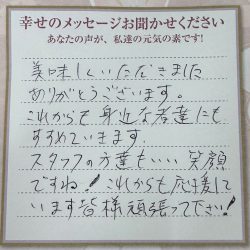 幸せのメッセージお聞かせください
あなたの声が、私達の元気の素です!
美味しくいただきました
ありがとうございます。
これからも身近な者達にも
すすめていきます。
スタッフの方達もいい笑顔
ですね! これからも応援して
います皆様頑張って下さい!